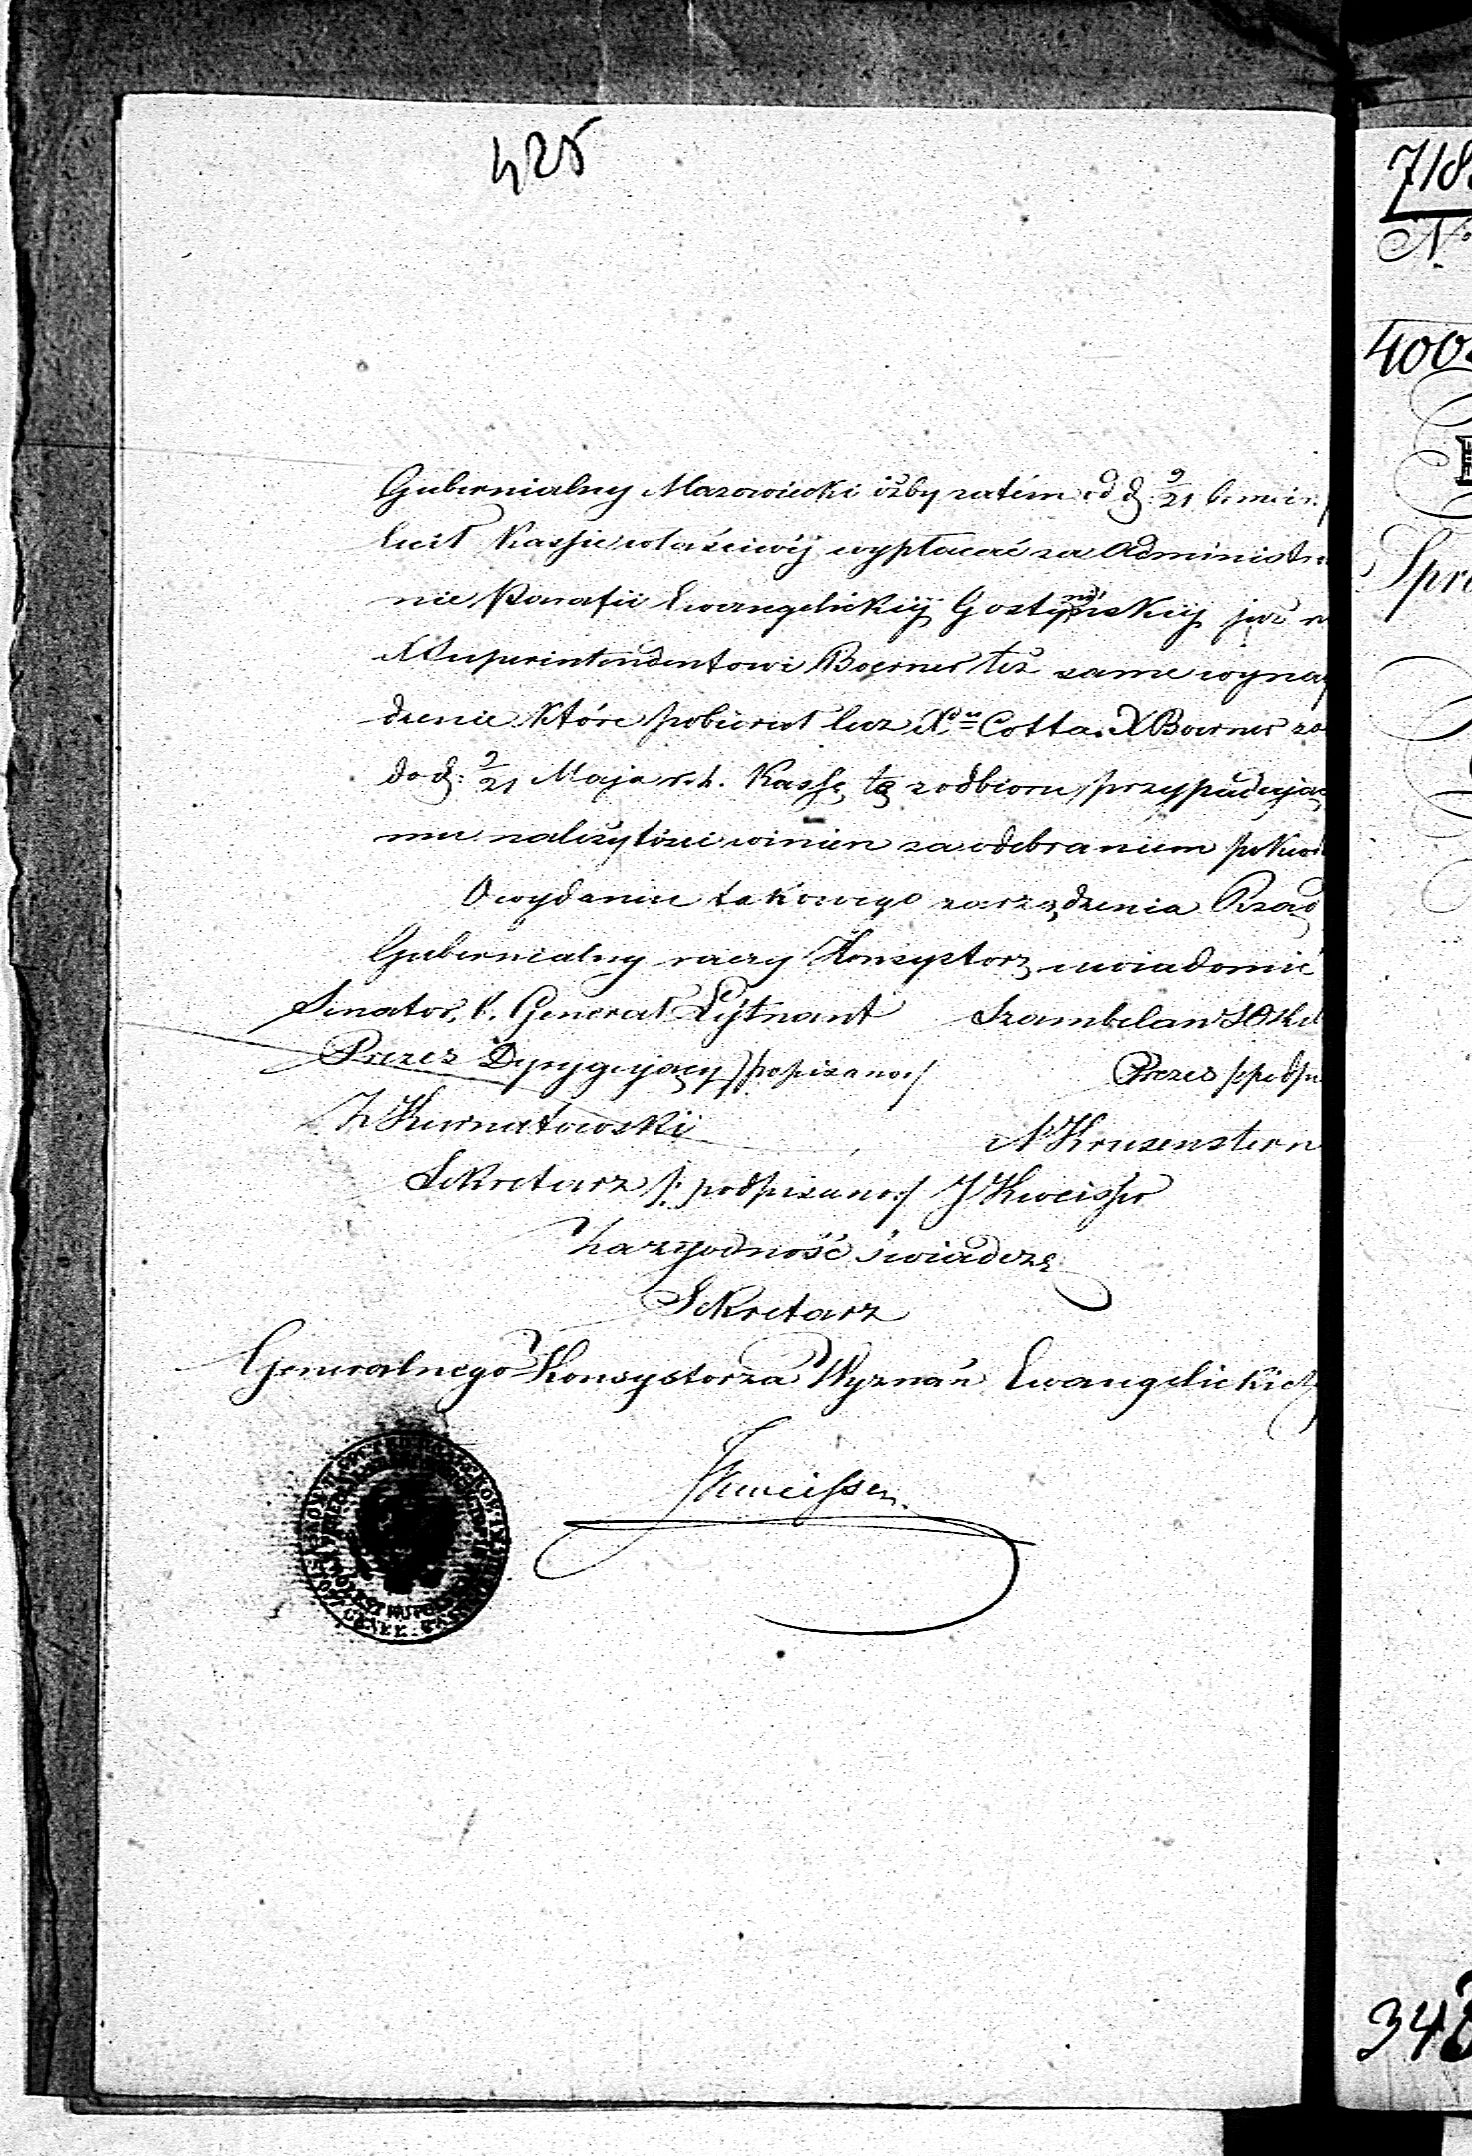 425
Gubernialny Mazowiecki iżby zatém od d. 9/21 b. m. i r.
lecił Kassie właściwéj wypłacać za Administro
nie Parafii Ewangelickiéj Gostynskiéj już
X Superintendentowi Boerner też same wyna
dzenie które pobierał bez X. Cotta. X Boerner
do d: 9/21 Maja r. b. Kassę tę z odbioru przypadając
mu należytości winien za odebraniem pokwi
O wydaniu takowego zarządzenia Rząd
Gubernialny raczy Konsystorz uwiadomić
Senator, Generał Lejtnant Szambelan
Prezes Dyrygujący /podpisano:/ Prezes /:podpi
Kurnatowski Krusenstern
Sekretarz /: podpisano:/ J Kweisser
Za zgodność świadczę
Sekretarz
Generalnego Konsystorza Wyznań Ewangelickich
JKweisser
718
No
400
Spra
348